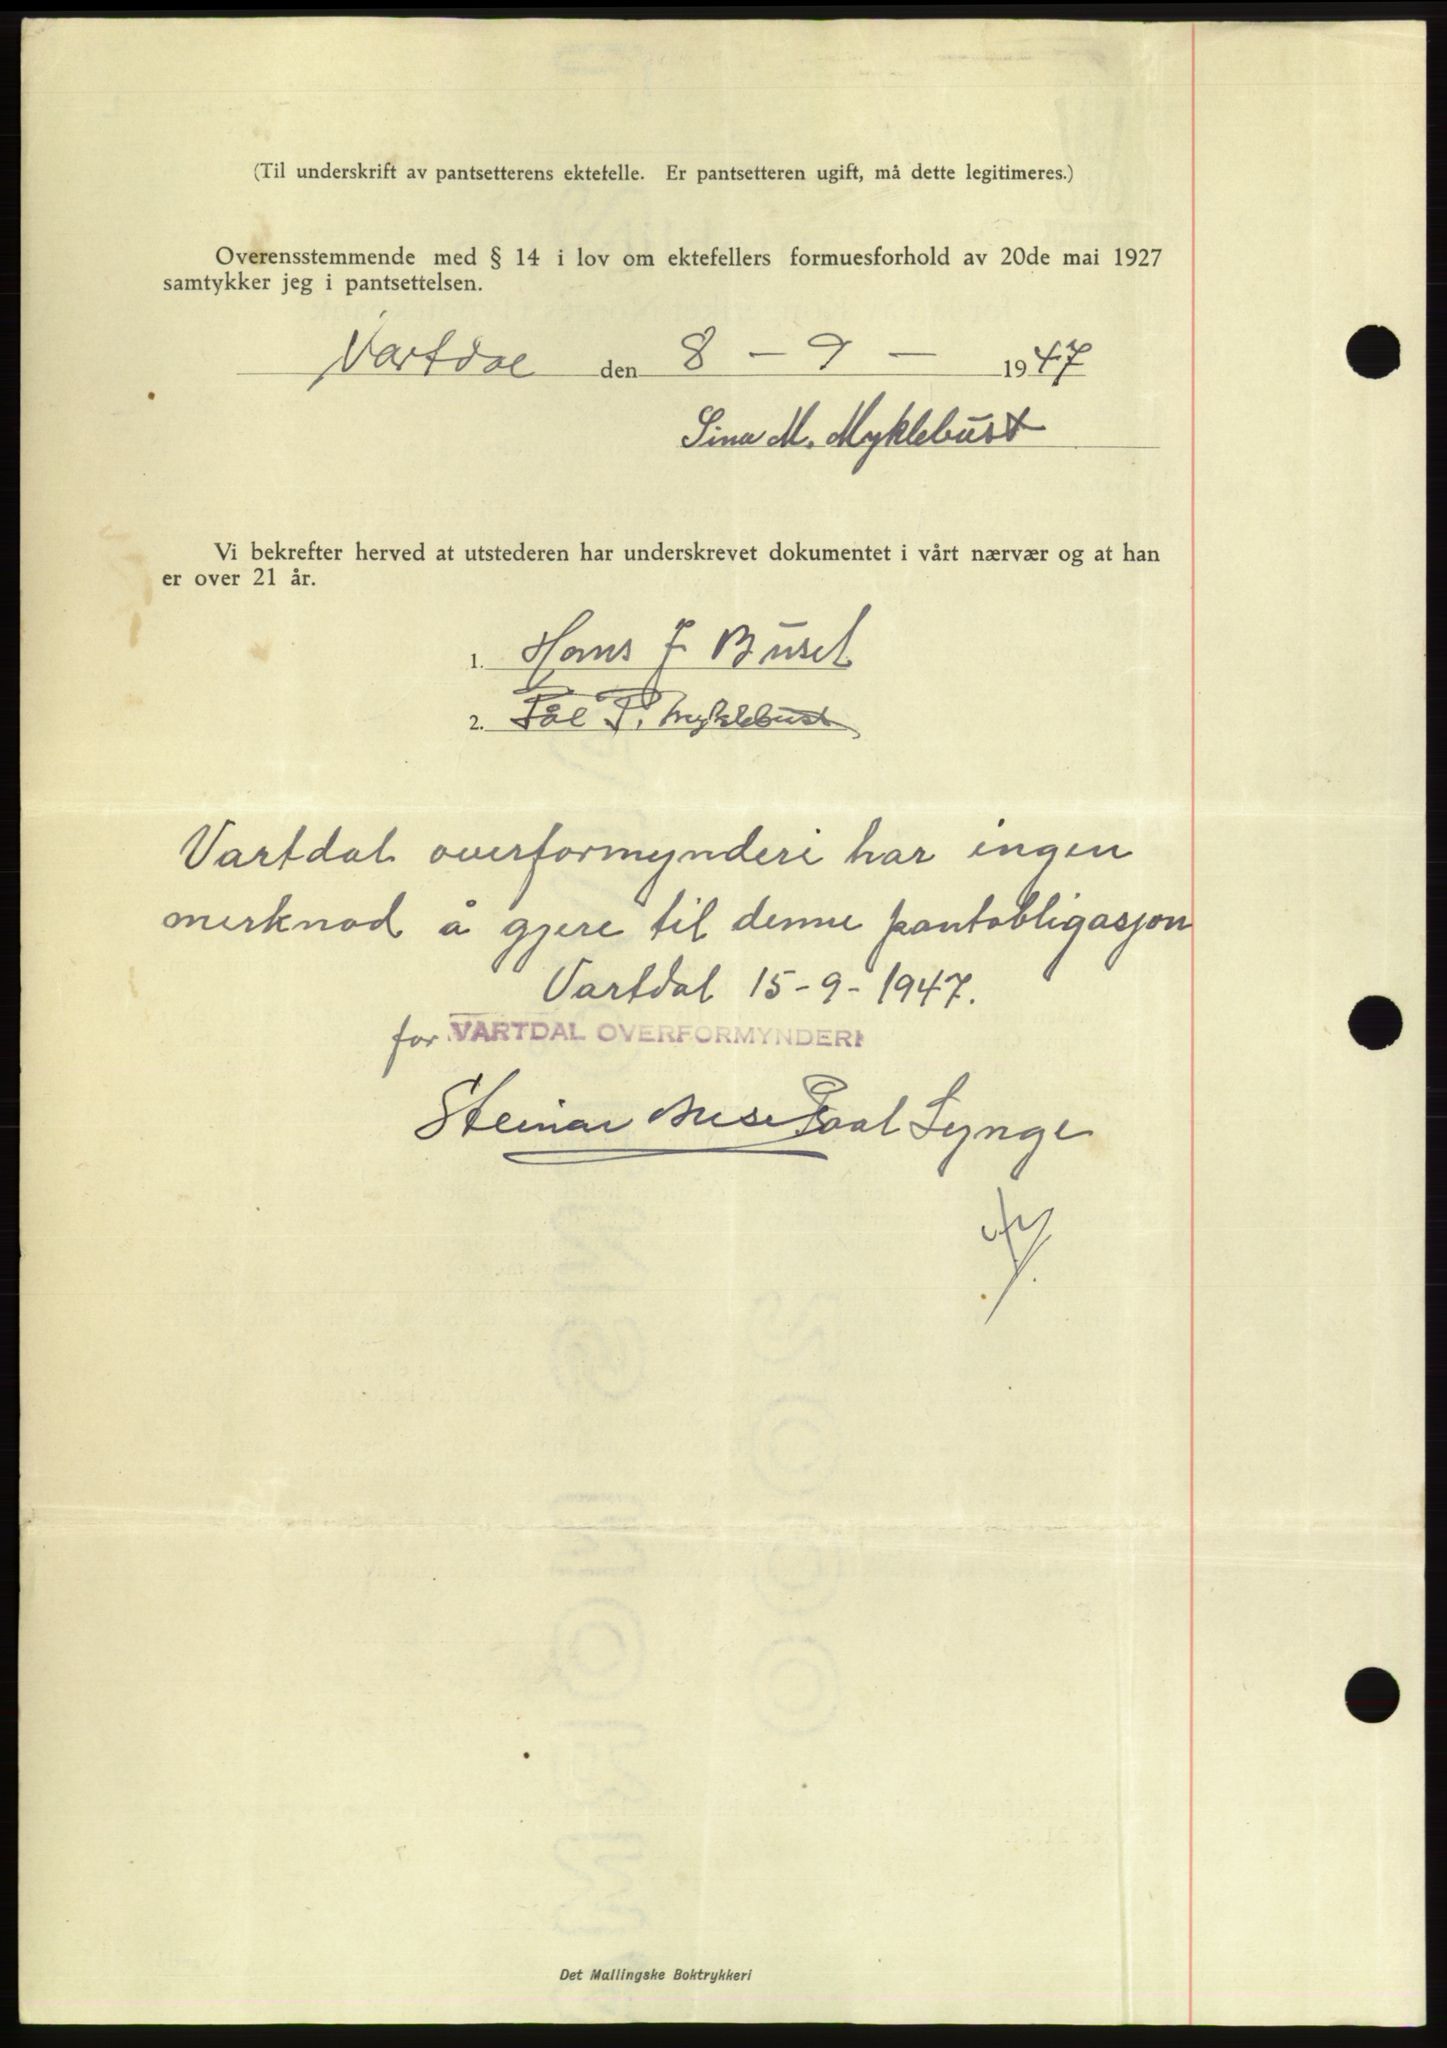 (Til underskrift av pantsetterens ektefelle. Er pantsetteren ugift, må dette legitimeres.)
Overensstemmende med § 14 i lov om ektefellers formuesforhold av 20de mai 1927
samtykker jeg i pantsettelsen.
Vartdal den 8 - 9 - 1947
Sina M. Myklebust
Vi bekrefter herved at utstederen har underskrevet dokumentet i vårt nærvær og at han
er over 21 år.
1. Hans J
2. Pål P. Myklebust
Vartdal overformynderi har ingen
merknad å gjere til denne pantobligasjon
Vartdal 15-9-1947.
for VARTDAL OVERFORMYNDERI
Steinar Paal Lynge
Det Mallingske Boktrykkeri